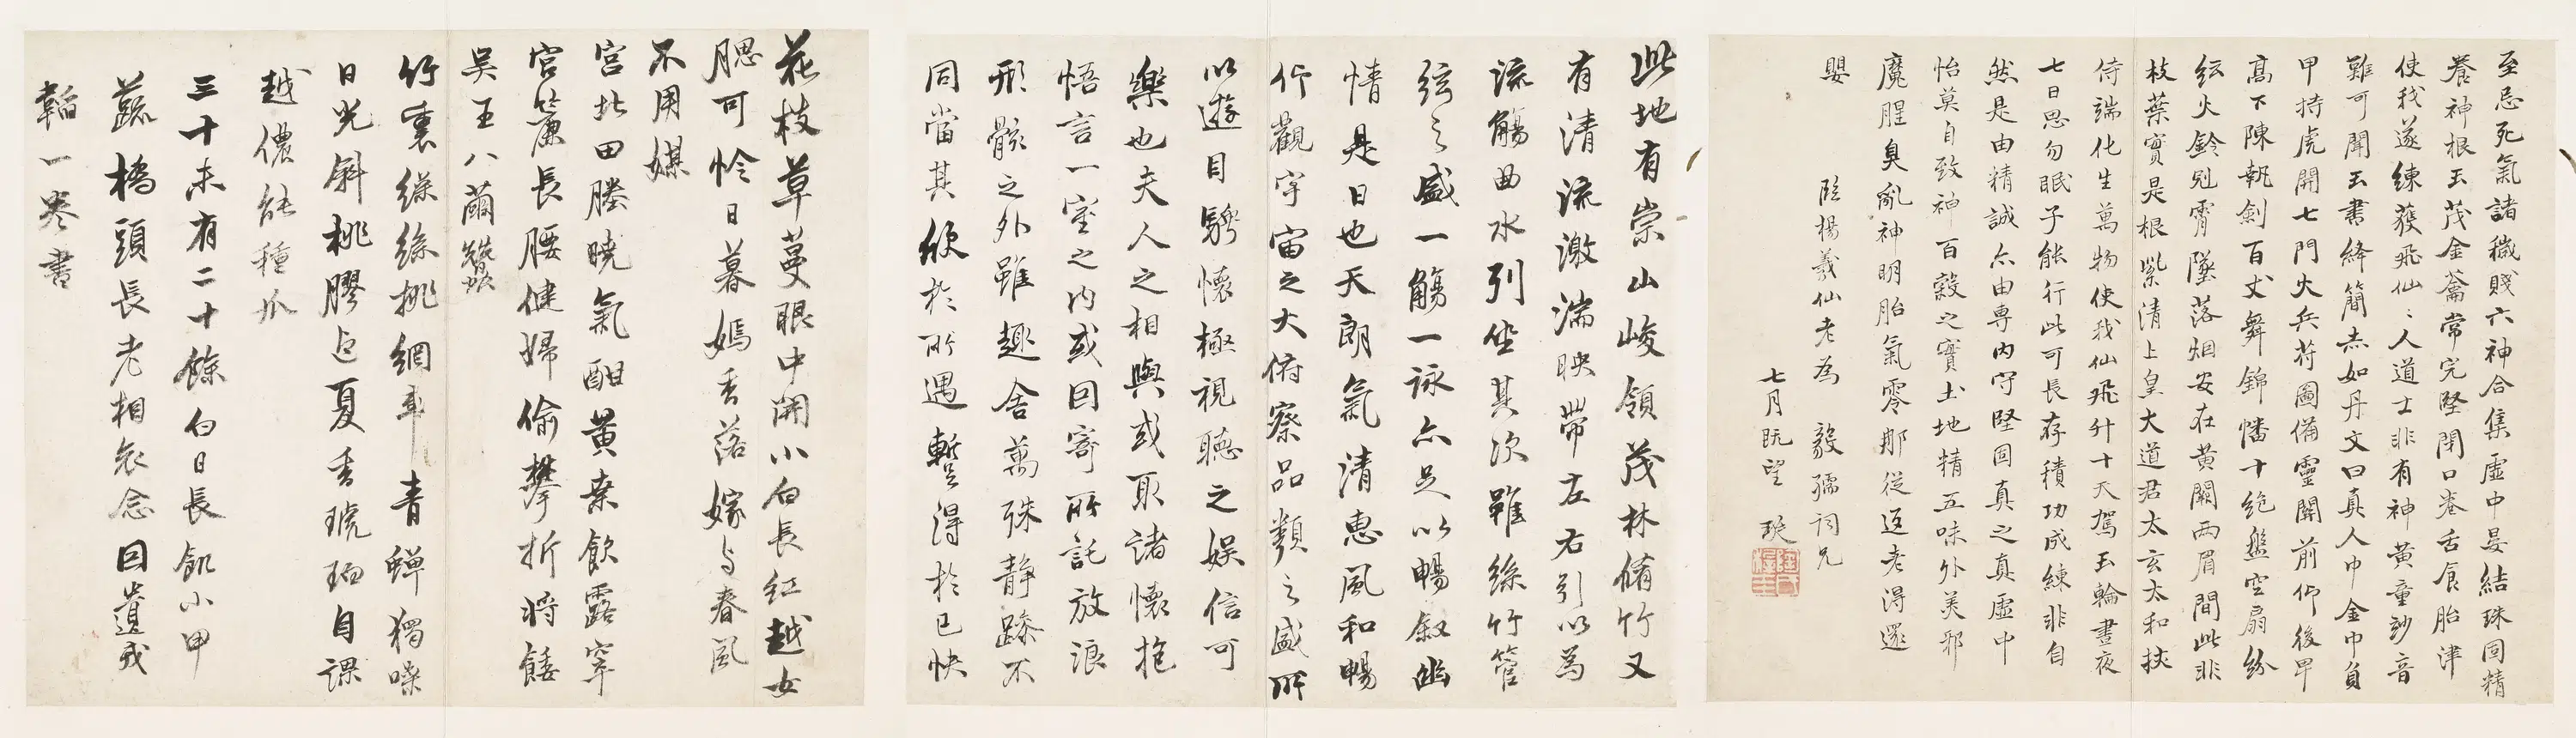 至忌死氣諸穢賤六神合集虛中晏結珠同精
養神根玉茂金籥常完堅閉口卷舌食胎津
使我遂練獲飛仙〻人道士非有神黃童妙音
難可聞玉書絳簡赤如丹文曰真人巾金巾負
甲持虎開七門火兵符圖備靈關前仰後卑
高下陳執劍百丈舞錦幡十絕盤空扇紛
紜火鈴冠霄墜落烟安在黃闕兩眉間此非
枝葉實是根紫清上皇大道君太玄太和挾
侍端化生萬物使我仙飛升十天駕玉輪晝夜
七日思勿眠子能行此可長存積功成練非自
然是由精誠亦由專內守堅固真之真虛中
怡莫自致神百穀之實土地精五味外美邪
魔腥臭亂神明胎氣零那從返老得還
嬰
臨楊羲仙老為 毅孺詞兄
七月既望
此地有崇山峻領茂林脩竹又
有清流激湍映帶左右引以為
流觴曲水列坐其次雖絲竹管
弦之盛一觴一詠亦足以暢叙幽
情是日也天朗氣清惠風和暢
仰觀宇宙之大俯察品類之盛所
以遊目騁懷極視聽之娛信可
樂也夫人之相與或取諸懷抱
悟言一室之內或因寄所託放浪
形骸之外雖趣舍萬殊靜躁不
同當其欣於所遇暫得於己快
花枝草蔓眼中開小白長紅越女
腮可怜日暮嫣香落嫁与春風
不用媒
宮北田塍曉氣酣黃桑飲露窣
宮簾長腰健婦偷攀折將餧
吳王八繭蠶
竹裏繰絲挑網車青蟬獨噪
日光斜桃膠迎夏香琥珀自課
越儂能種瓜
三十未有二十餘白日長飢小甲
蔬橋頭長老相哀念因遺戎
韜一卷書